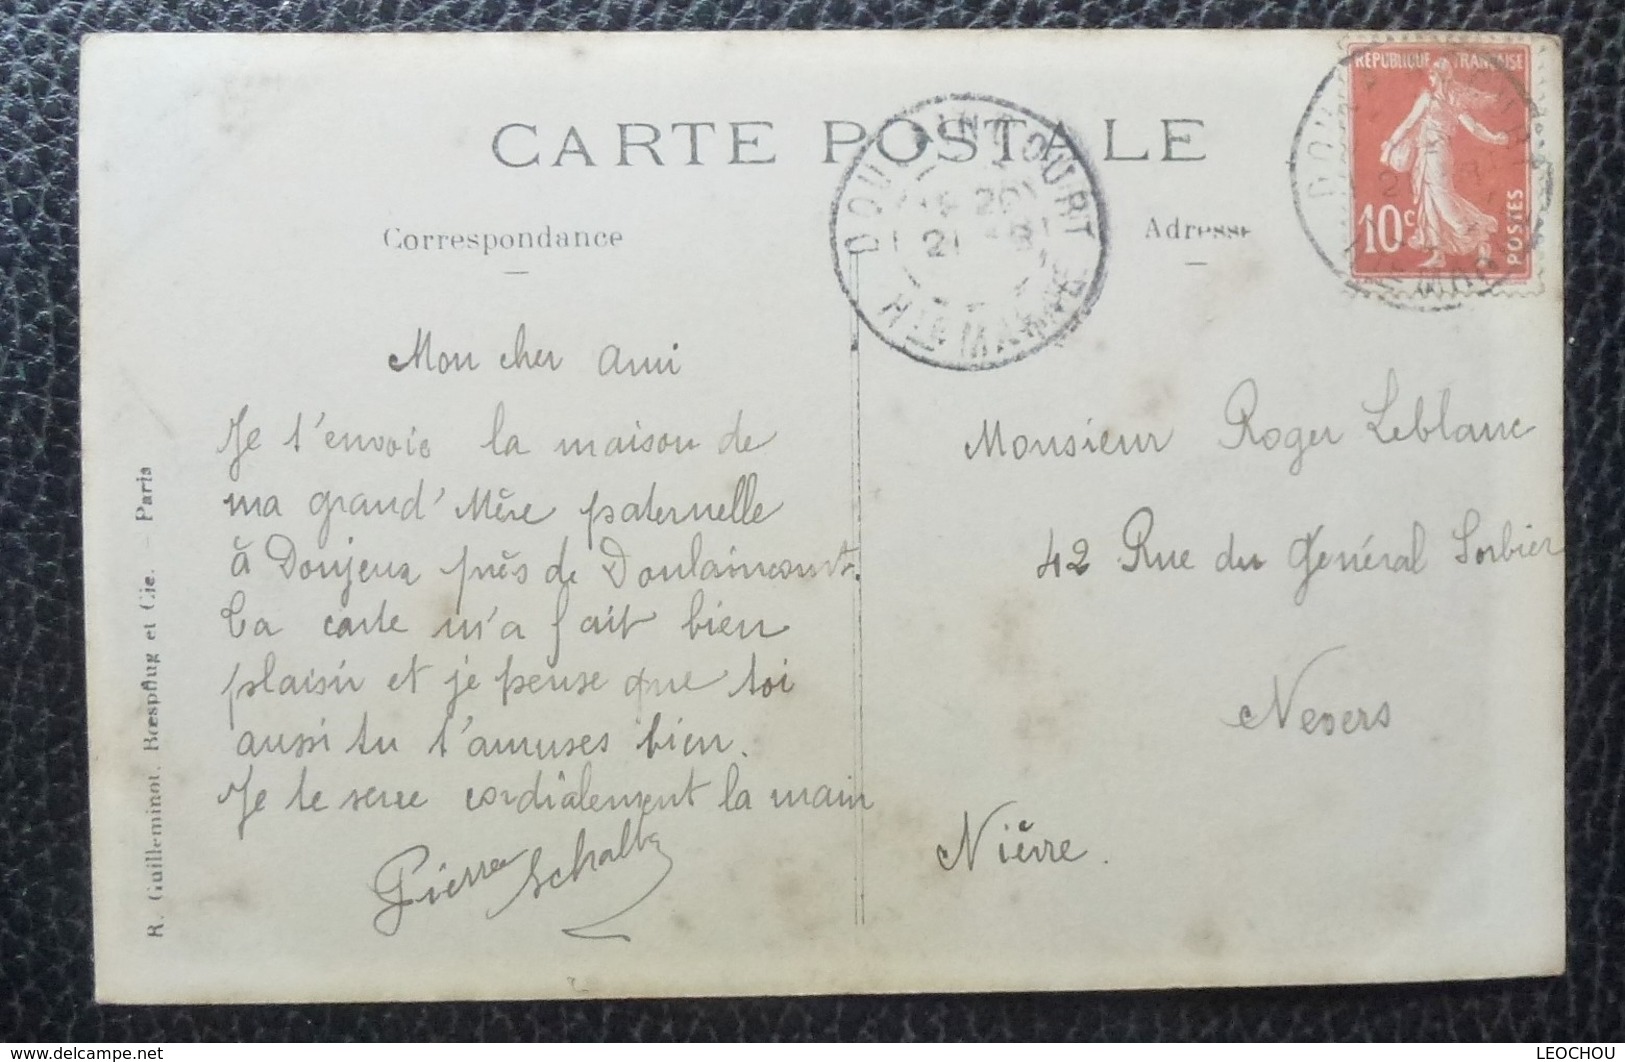 CARTE POSTALE
Correspondance
Adresse
REPUBLIQUE FRANÇAISE
10c
POSTES
DOULAINCOURT
20
21 - 8
HTE MARNE
Mon cher ami
Je t'envoie la maison de
ma grand'Mère paternelle
à Donjeux près de Doulaincourt.
Ta carte m'a fait bien
plaisir et je pense que toi
aussi tu t'amuses bien.
Je te serre cordialement la main
Pierre
Monsieur Roger Leblanc
42 Rue du Général Sorbier
Nevers
Nièvre.
R. Guilleminot, Bœspflug et Cie. - Paris
www.delcampe.net
LEOCHOU